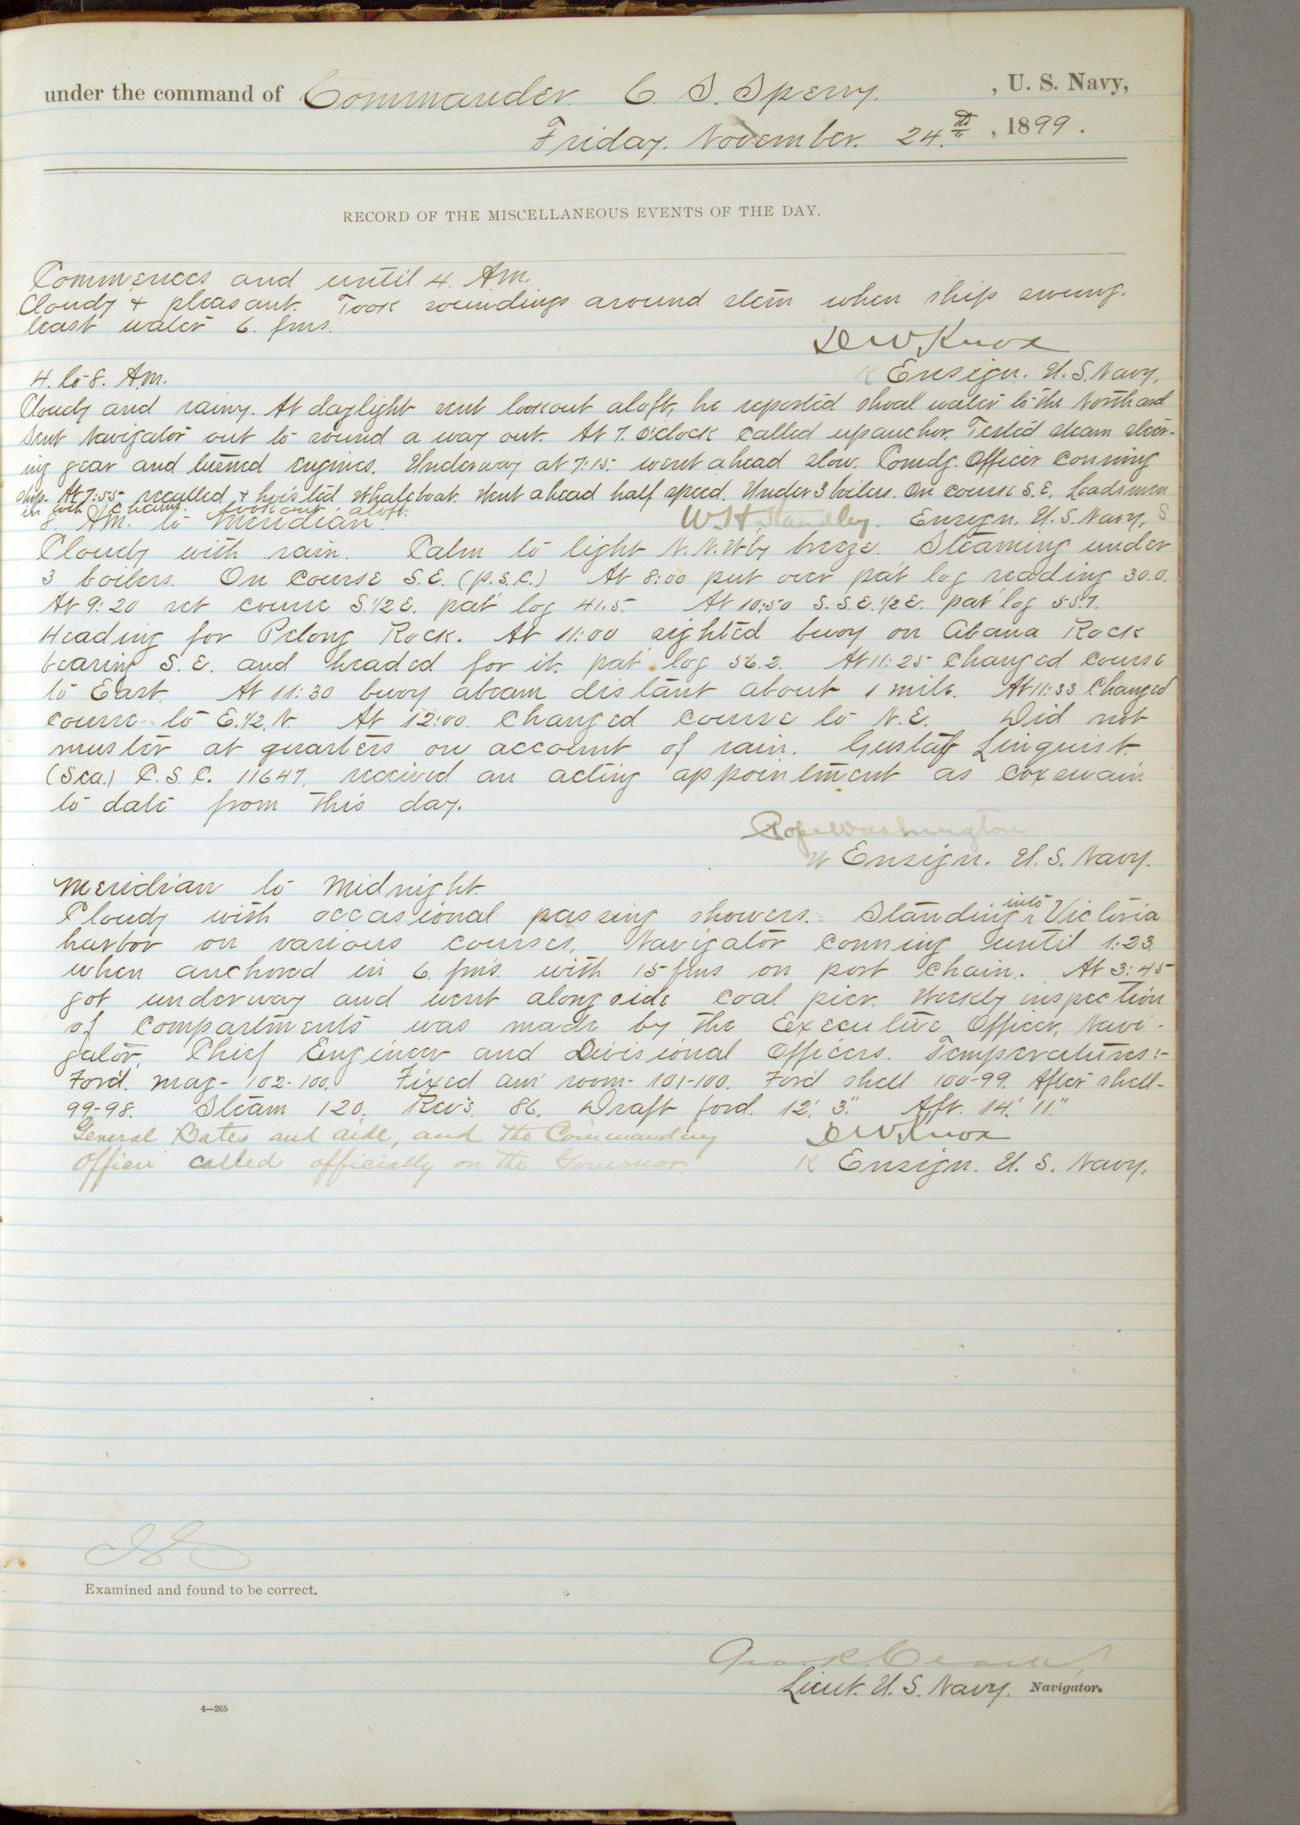 under the command of Commander C. S. Sperry. , U. S. Navy,
Friday. November. 24.th , 1899.
RECORD OF THE MISCELLANEOUS EVENTS OF THE DAY.
Commences and until 4. Am.
Cloudy & pleasant. Took soundings around stern when ship swung.
least water 6. fms.
D W Knox
K Ensign. U. S. Navy.
4. to 8. A.m.
Cloudy and rainy. At daylight sent lookout aloft, he reported shoal water to the North and
Sent Navigator out to sound a way out. At 7. O'clock called up anchor. Tested steam steer-
ing gear and turned engines. Underway at 7:15. went ahead slow. Comdg. Officer conning
ship. At 7:55 recalled & hoisted Whaleboat. Went ahead half speed. Under 3 boilers. On course S. E. Leadsmen
in both chains. Lookout aloft.
W. H. Standley. Ensign. U. S. Navy. S
8. Am. to Meridian.
Cloudy with rain. Calm to light N. N. Wly breeze. Steaming under
3 boilers. On course S. E. (p.s.c.) At 8:00 put over pat log reading 30.0.
At 9:20 set course S. 1/2 E. pat log 41.5. At 10:50 S. S. E. 1/2 E. pat log 55.7.
Heading for Pelong Rock. At 11:00 sighted buoy on Abana Rock
bearing S. E. and headed for it. pat. log 56.2. At 11:25 changed course
to East. At 11:30 buoy abeam distant about 1 mile. At 11:33 Changed
course to E. 1/2. N. At 12:00. changed course to N. E. Did not
muster at quarters on account of rain. Gustaf Linquist.
(Sea.) C. S. C. 11647, received an acting appointment as coxswain
to date from this day.
Pope Washington
W Ensign. U. S. Navy.
Meridian to Midnight.
Cloudy with occasional passing showers. Standing into Victoria
harbor on various courses, Navigator conning until 1:23.
when anchored in 6. fms. with 15 fms on port chain. At 3:45
got underway and went alongside coal pier. Weekly inspection
of compartments was made by the Executive Officer, Navi-
gator, Chief Engineer and Divisional Officers. Temperatures:-
Ford. mag- 102-100. Fixed am' room- 101-100. Ford shell 100-99. After shell-
99-98. Steam 120. Rev's. 86. Draft ford. 12'. 3." Aft. 14.' 11."
General Bates and aide, and the Commanding
Officer called officially on the Governor.
D W Knox
K Ensign. U. S. Navy.
Examined and found to be correct.
Lieut. U. S. Navy. Navigator.
4—265